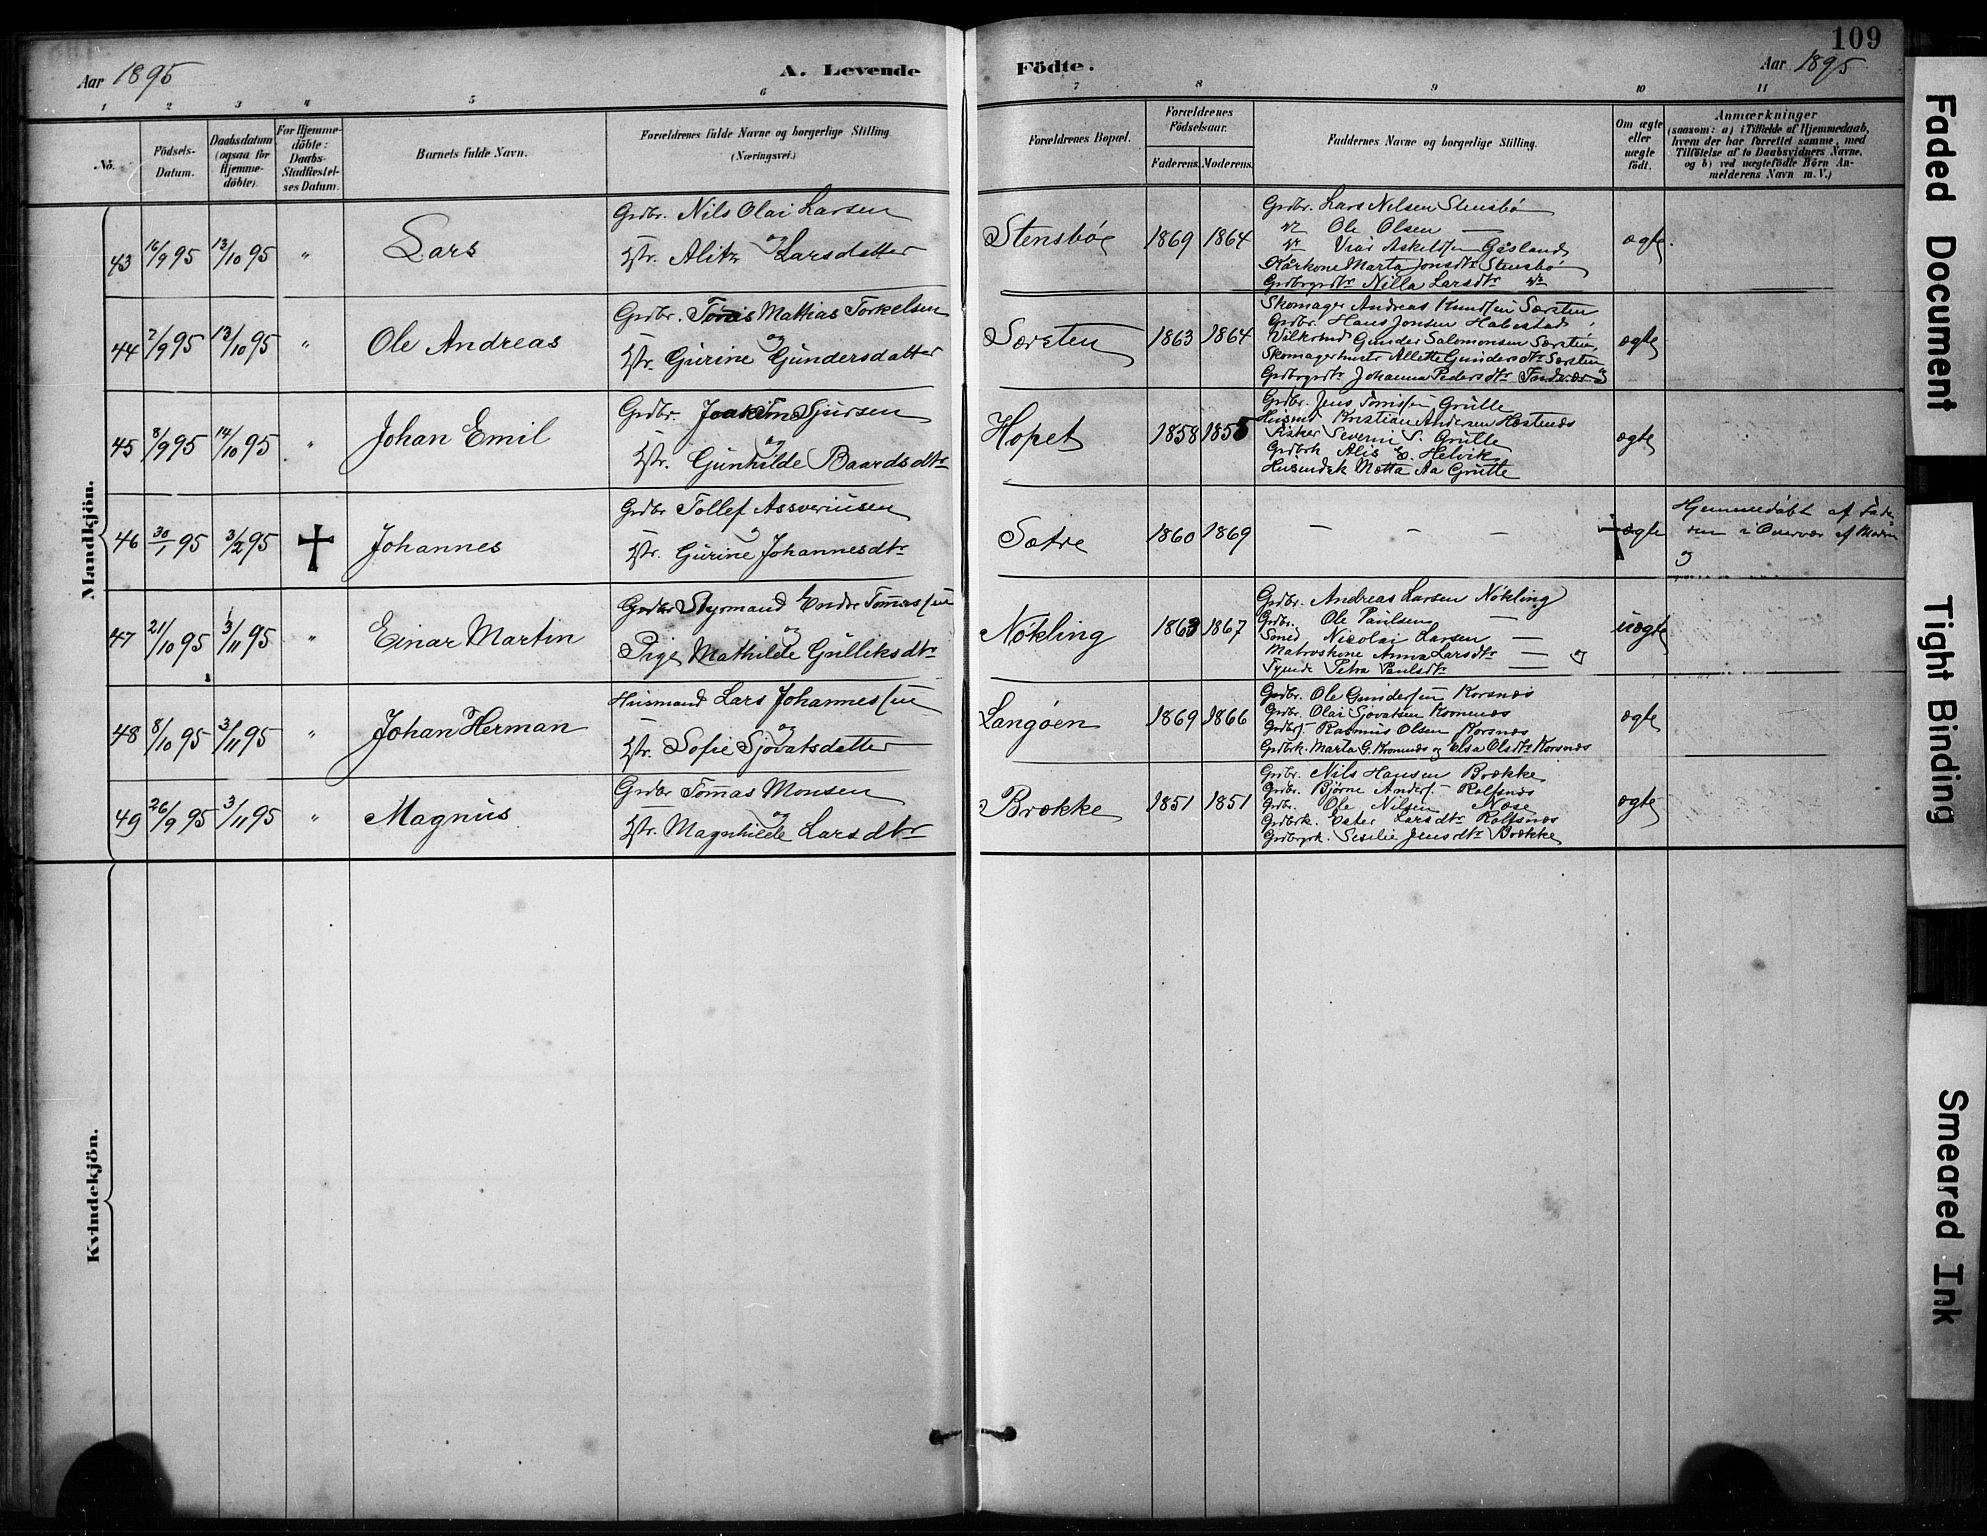 109
Aar 1895
A. Levende
Födte.
Aar 1895
1 2 3 4 5 6 7 8 9 10 11
No.
Födsels-
Datum.
Daabsdatum
(ogsaa for
Hjemme-
döbte).
For Hjemme-
döbte:
Daabs-
Stadfæstel-
ses Datum.
Barnets fulde Navn.
Forældrenes fulde Navne og borgerlige Stilling.
(Næringsvei.)
Forældrenes Bopæl.
Forældrenes
Födselsaar.
Faderens.
Moderens.
Faddernes Navne og borgerlige Stilling.
Om ægte
eller
uægte
födt.
Anmærkninger
(saasom: a) i Tilfælde af Hjemmedaab,
hvem der har forrettet samme, med
Tilföielse af to Daabsvidners Navne,
og b) ved uægtefödte Börn An-
melderens Navn m. V.)
Mandkjön.
43 16/9 95 13/10 95 " Lars
Grdbr. Nils Olai Larsen
og
Hstr. Alitz Larsdatter
Stensbøe 1869 1864
Grdbr. Lars Nilsen Stensbø
Ole Olsen —
Vrai Askeldsen Gåsland
Kårkone Marta Jonsdtr Stensbø
Nilla Larsdtr
ægte
44 2/9 95 13/10 95 " Ole Andreas
Grdbr. Tønis Mathias Torkelsen
og
Hstr. Gurine Gundersdatter
Særsten 1863 1864
Skomager Andreas Knudsen Særsten
Grdbr. Hans Jonsen Habestad
Gunder Salomonsen Særsten
Skomagerhustr Allette Gundersdtr Særsten
Johanna Pedersdtr
ægte
45 8/9 95 14/10 95 " Johan Emil
Grdbr. Sjursen
og
Hstr. Gunhilde Baardsdtr
Hopet 1858 1855
Grdbr. Jens Tønnissen Grutle
Husmd Kristian Andersen Hæstenæs
Fisker Severin S. Grutle
Grdbrk Alis E. Helvik
Husmdsk Mætta Aa Grutle
ægte
46 30/1 95 3/2 95 † Johannes
Grdbr Tollef Assveriusen
og
Hstr. Gurine Johannesdtr
Sætre 1860 1869
— — —
ægte
Hjemmedøbt af Fade-
ren i Overvær af Moderen
og
47 21/10 95 3/11 95 " Einar Martin
Styrmand Endre Tomassen
og
Pige Mathilde Gulliksdtr
Nøkling 1863 1867
Grdbr. Andreas Larsen Nøkling
Grdbr. Ole Paulsen —
Smed Nicolai Larsen —
Matroskone Anna Larsdtr — og
Tyende Petra Paulsdtr —
uægte
48 8/10 95 3/11 95 " Johan Herman
Husmand Lars Johannessen
og
Hstr. Sofie Sjovatsdatter
Langøen 1869 1866
Grdbr. Ole Gundersen Korsnæs
Grdbr. Olai Sjovatsen Kronenæs
Rasmus Olsen Korsnæs
Grdbrk. Marta G. Kronenæs og Elsa Olsdtr Korsnæs
ægte
49 26/9 95 3/11 95 " Magnus
Grdbr Tomas Monsen
og
Hstr. Magnhilde Larsdtr
Brække 1851 1851
Grdbr. Nils Hansen Brække
Grdbr. Bjørne Anders. Rolfsnæs
Grdbr. Ole Nilsen Næse
Grdbrk. Ester Larsdtr Rolfsnæs
Seselie Jensdtr Brække
ægte
Kvindekjön.
Faded Document
Tight Binding
Smeared Ink